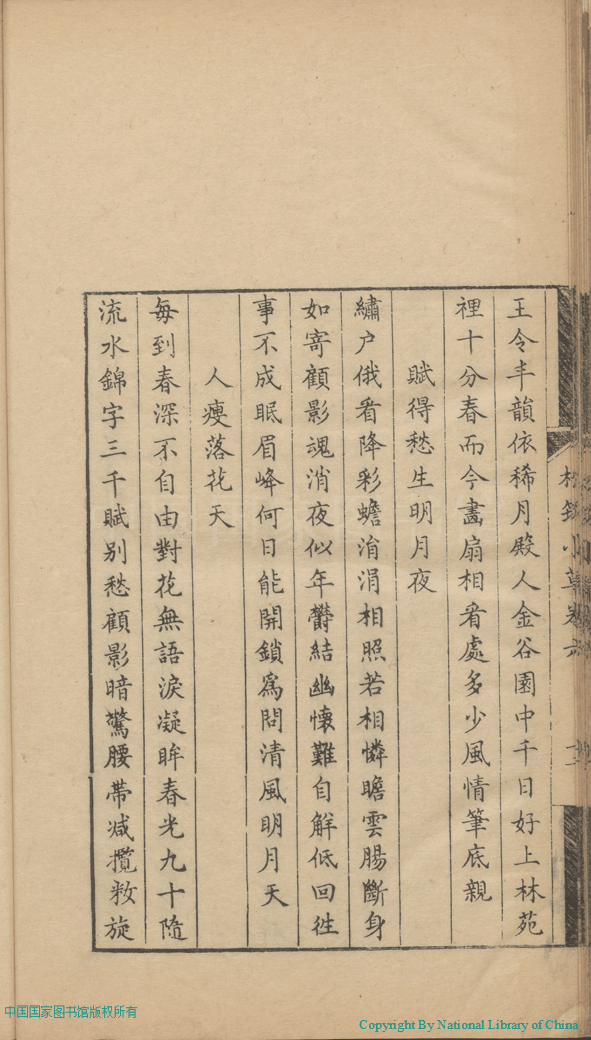 王令丰韻依稀月殿人金谷園中千日好上林苑
裡十分春而今畵扇相看處多少風情筆底親
賦得愁生明月夜
繡户俄看降彩蟾涓涓相照若相憐瞻雲腸斷身
如寄顧影魂消夜似年欝結幽懷難自解低回徃
事不成眠眉峰何日能開鎖爲問清風明月天
人瘦落花天
每到春深不自由對花無語淚凝眸春光九十隨
流水錦字三千賦别愁顧影暗驚腰帶减攬敉旋
小草卷六
中国国家图书馆版权所有
Copyright By National Library of China